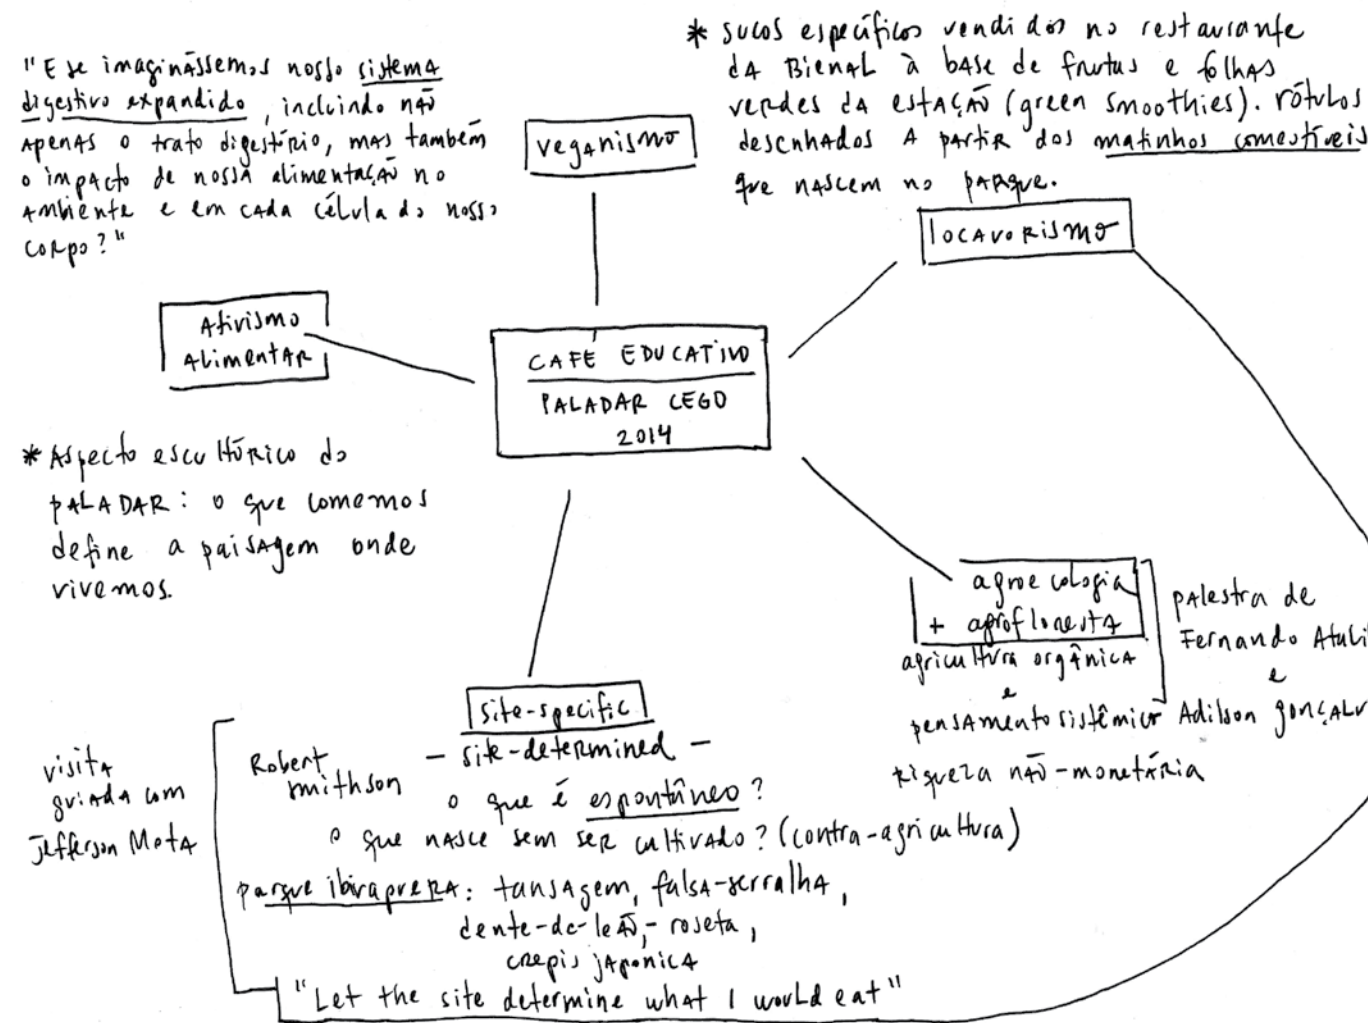 "E se imaginássemos nosso sistema
digestivo expandido, incluindo não
apenas o trato digestório, mas também
o impacto de nossa alimentação no
ambiente e em cada célula do nosso
corpo?"
* sucos específicos vendidos no restaurante
da Bienal à base de frutas e folhas
verdes da estação (green smoothies). rótulos
desenhados a partir dos matinhos comestíveis
que nascem no parque.
veganismo
locavorismo
Ativismo
Alimentar
CAFÉ EDUCATIVO
PALADAR CEGO
2014
* Aspecto escultórico do
PALADAR: o que comemos
define a paisagem onde
vivemos.
agroecologia
+ agrofloresta
agricultura orgânica
e
pensamento sistêmico
riqueza não-monetária
palestra de
Fernando
e
Adilson
site-specific
- site-determined -
Robert
smithson
o que é espontâneo?
o que nasce sem ser cultivado? (contra-agricultura)
parque ibirapuera: tansagem, falsa-serralha,
dente-de-leão, roseta,
crepis japonica
"Let the site determine what I would eat"
visita
guiada com
Jefferson Mota